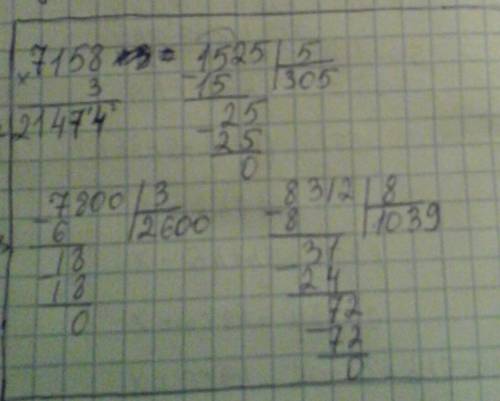 7158 = 1525 | 5
× 3 - 15 305
21474 - 25
25
0
- 7800 | 3 - 8312 | 8
6 2600 8 1039
- 18 - 31
18 24
0 - 72
72
0